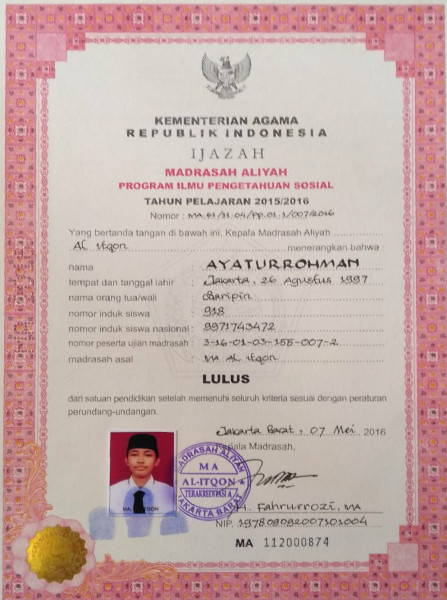 KEMENTERIAN AGAMA
REPUBLIK INDONESIA
IJAZAH
MADRASAH ALIYAH
PROGRAM ILMU PENGETAHUAN SOSIAL
TAHUN PELAJARAN 2015/2016
Nomor : MA.01/31.04/PP.01.1/007/2016
Yang bertanda tangan di bawah ini, Kepala Madrasah Aliyah
Al Itqon menerangkan bahwa
nama AYATURROHMAN
tempat dan tanggal lahir : Jakarta, 26 Agustus 1997
nama orang tua/wali : Saripin
nomor induk siswa : 918
nomor induk siswa nasional : 9971743472
nomor peserta ujian madrasah : 3-16-01-03-155-007-2
madrasah asal : MA AL Itqon
LULUS
dari satuan pendidikan setelah memenuhi seluruh kriteria sesuai dengan peraturan
perundang-undangan.
Jakarta Barat, 07 Mei 2016
Kepala Madrasah,
MADRASAH ALIYAH
MA
AL-ITQON
TERAKREDITASI A
JAKARTA BARAT
H. Fahrurrozi, MA
NIP. 197809092007101004
MA 112000874